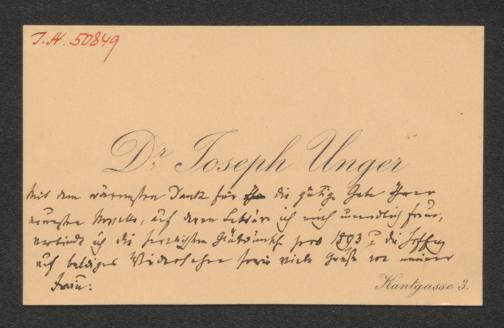 I.N. 50849
Dr. Joseph Unger
Mit dem wärmsten Dank für die gütige Gabe Ihrer
neuesten Novelle, auf deren Lektüre ich mich unendlich freue,
verbinde ich die herzlichsten Glückwünsche pro 1893 u. die Hoffnung
auf baldiges Wiedersehen sowie viele Grüße von meiner
Frau.
Kantgasse 3.